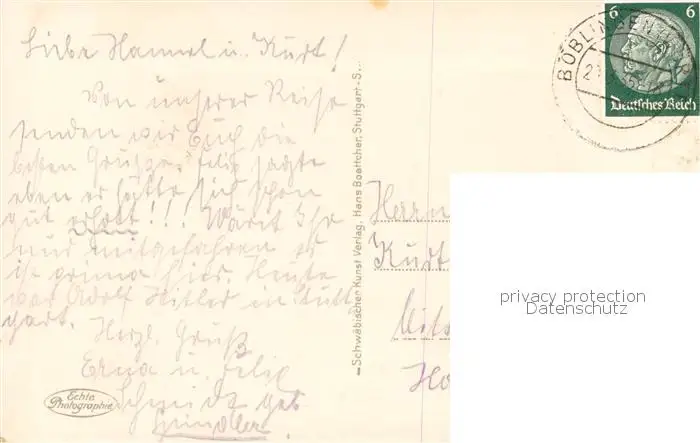 Liebe Hannel u. Kurt!
Von unserer Reise
senden wir Euch die
besten Grüße. Felix sagte
eben er hätte sich schon
gut erholt!!! Wäret Ihr
nur mitgefahren es
ist prima hier. Heute
war Adolf Hitler in Stutt
gart. Herzl. Gruß
Erna u. Felix
Schmidt geb
Echte
Photographie
Schwäbischer Kunst Verlag, Hans Boettcher, Stuttgart-S...
BÖBLINGEN
6 6
Deutsches Reich
Herrn
Kurt
privacy protection
Datenschutz